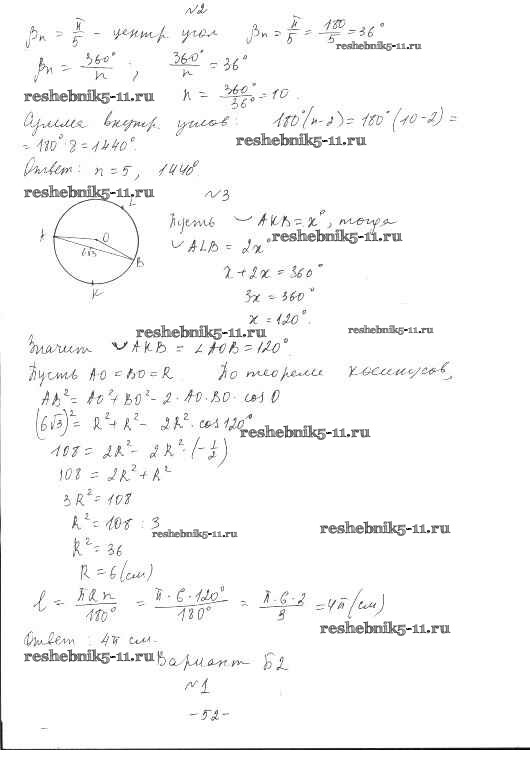 №2
βn = π/5 - центр. угол βn = π/5 = 180/5 = 36°
reshebnik5-11.ru
βn = 360°/n ; 360°/n = 36°
reshebnik5-11.ru n = 360°/36° = 10.
Сумма внутр. углов: 180°(n-2) = 180°(10-2) =
reshebnik5-11.ru
= 180°·8 = 1440°.
Ответ: n = 5, 1440°.
reshebnik5-11.ru №3
L
A O B
6√3
K
Пусть ◡AKB = x°, тогда
reshebnik5-11.ru
◡ALB = 2x°
x + 2x = 360°
3x = 360°
x = 120°.
reshebnik5-11.ru reshebnik5-11.ru
Значит ◡AKB = ∠AOB = 120°.
Пусть AO = BO = R По теореме косинусов,
AB² = AO² + BO² - 2·AO·BO·cos O
(6√3)² = R² + R² - 2R²·cos120°
reshebnik5-11.ru
108 = 2R² - 2R²·(-1/2)
108 = 2R² + R²
3R² = 108
R² = 108 : 3
reshebnik5-11.ru reshebnik5-11.ru
R² = 36
R = 6 (см)
l = πRn/180° = π·6·120°/180° = π·6·2/3 = 4π (см)
reshebnik5-11.ru
Ответ: 4π см.
reshebnik5-11.ru Вариант Б2
№1
-52-